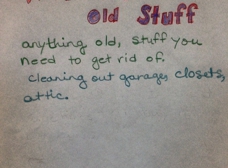 old Stuff
anything old, stuff you
need to get rid of.
cleaning out garages, closets,
attic.